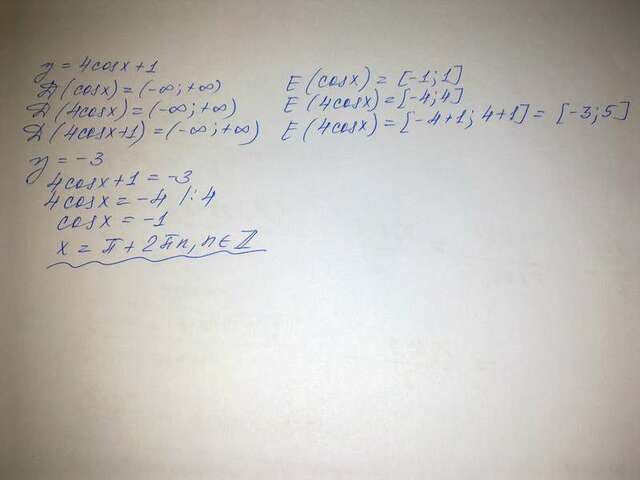 y = 4cosx+1
Д(cosx) = (-∞; +∞)
Д(4cosx) = (-∞; +∞)
Д(4cosx+1) = (-∞; +∞)
E(cosx) = [-1; 1]
E(4cosx) = [-4; 4]
E(4cosx) = [-4+1; 4+1] = [-3; 5]
y = -3
4cosx+1 = -3
4cosx = -4 /: 4
cosx = -1
x = π + 2πn, n∈Z